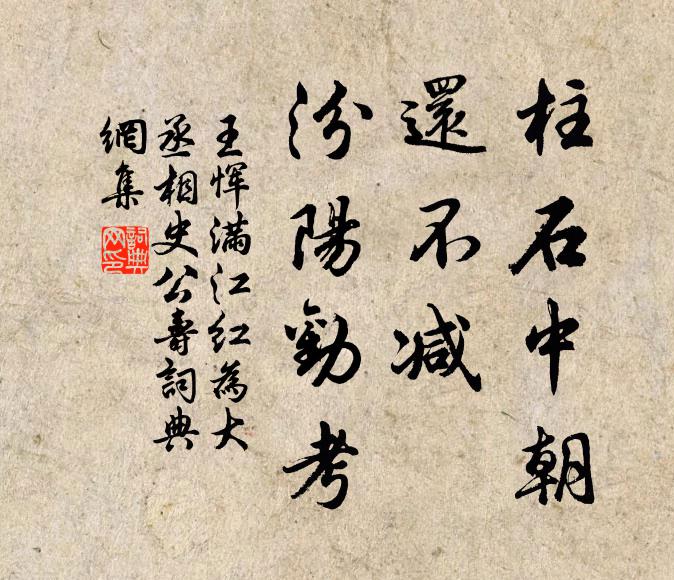 柱石中朝
還不减
汾陽勳考
王惲滿江紅為大
丞相史公壽詞典
網集
詞典
网印